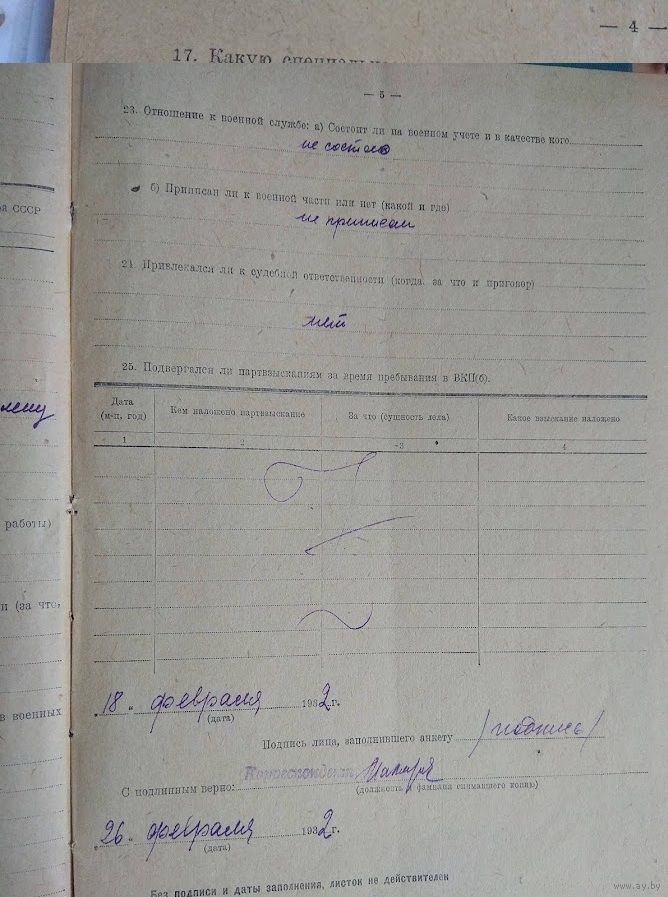 — 4 —
17. Какую
— 5 —
23. Отношение к военной службе: а) Состоит ли на военном учете и в качестве кого
не состою
б) Приписан ли к военной части или нет (какой и где)
не приписан
24. Привлекался ли к судебной ответственности (когда, за что и приговор)
нет
25. Подвергался ли партвзысканиям за время пребывания в ВКП(б).
Дата (м-ц, год) Кем наложено партвзыскание За что (сущность дела) Какое взыскание наложено
1 2 3 4
СССР
работы)
и (за что,
в военных
18 " февраля 1932 г.
(дата)
Подпись лица, заполнившего анкету /подпись/
С подлинным верно: Корреспондент
(должность и фамилия снимавшего копию)
26 " февраля 1932 г.
(дата)
Без подписи и даты заполнения, листок не действителен
www.ay.by